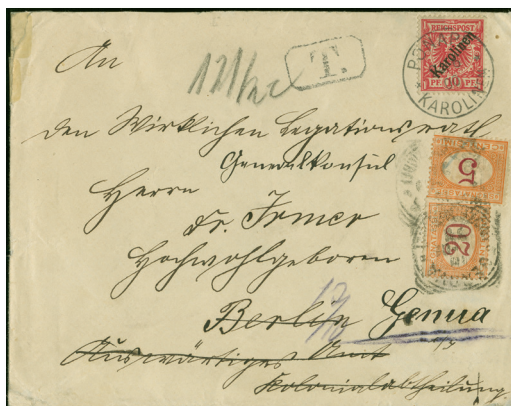 REICHSPOST
Karolinen
10
PF. PF.
PONAPE
KAROLINEN
T.
12 1/2 c
An
den Wirklichen Legationsrath
Generalkonsul
Herrn
Dr. Irmer
Hochwohlgeboren
Berlin Genua
Auswärtiges Amt
Kolonialabtheilung
5
20